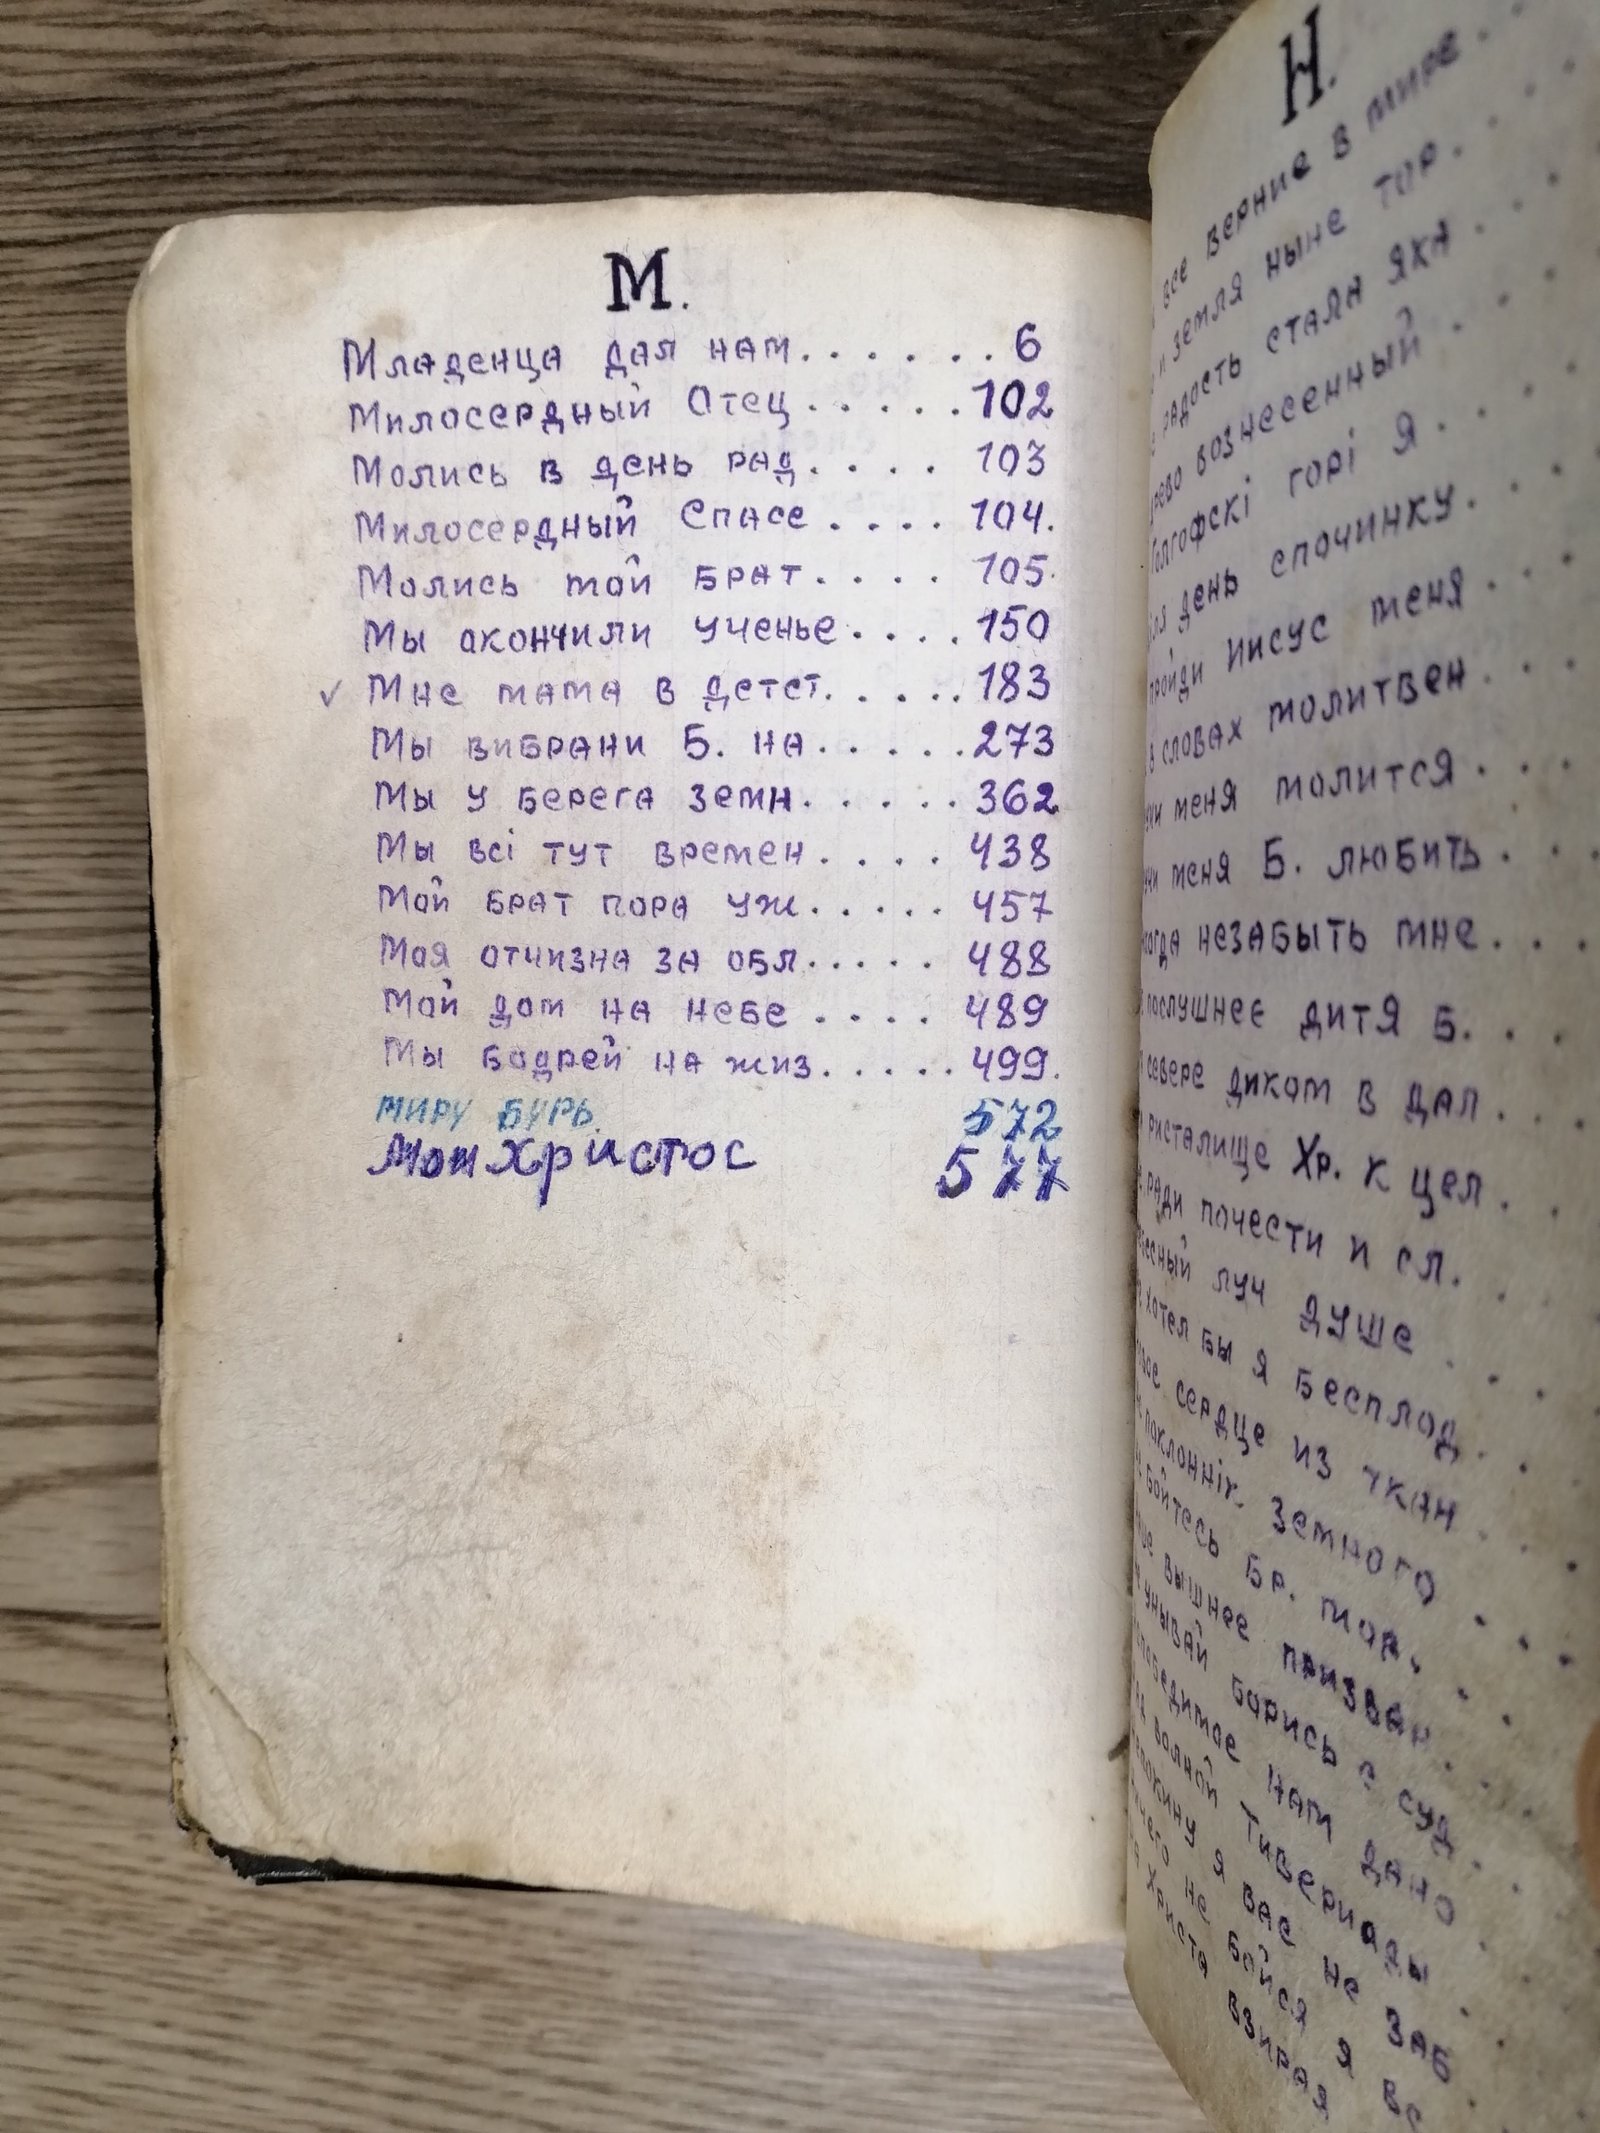 М.
Младенца дал нам. . . . . . . 6
Милосердный Отец . . . . . 102
Молись в день рад. . . . 103
Милосердный Спасе . . . . 104.
Молись мой брат. . . . 105.
Мы окончили ученье. . . . 150
✓ Мне мама в детст. . . . . 183
Мы вибрани Б. на. . . . . . 273
Мы у берега земн. . . . . 362
Мы всі тут времен. . . . 438
Мой брат пора уж. . . . . 457
Моя отчизна за обл. . . . . 488
Мой дом на небе . . . . 489
Мы бодрей на жиз. . . . . 499.
миру бурь. 572
Христос 577
Н.
все верние в мире .
и земля ныне тор. .
радость стала яка . .
вознесенный . .
Голгофскі горі я . . .
день спочинку. . .
пройди Иисус меня . . .
в словах молитвен . . .
меня молится . . .
меня Б. любить . . .
незабыть мне . . .
послушнее дитя Б. . . .
севере диком в дал . . .
ристалище Хр. к цел . .
ради почести и сл. . .
луч душе . . .
хотел бы я бесплод. .
сердце из ткан . .
поклоннік. земного . .
бойтесь Бр. мор. . .
вышнее призван . .
унывай борись с суд .
нам дано .
волной Тивериады .
я вас не заб .
не бойся я вс
Христа взирая